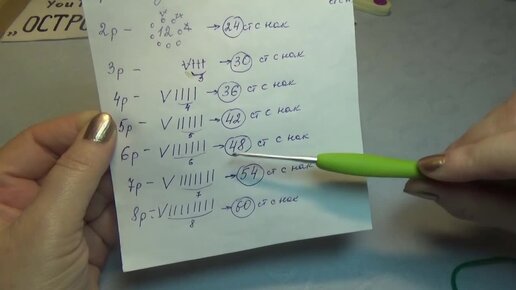 YouT
"ОСТРО
2р - 12 → 24 ст с нак
3р - V||| 3 → 30 ст с нак
4р - V|||| 4 → 36 ст с нак
5р - V||||| 5 → 42 ст с нак
6р - V|||||| 6 → 48 ст с нак
7р - V||||||| 7 → 54 ст с нак
8р - V|||||||| 8 → 60 ст с нак